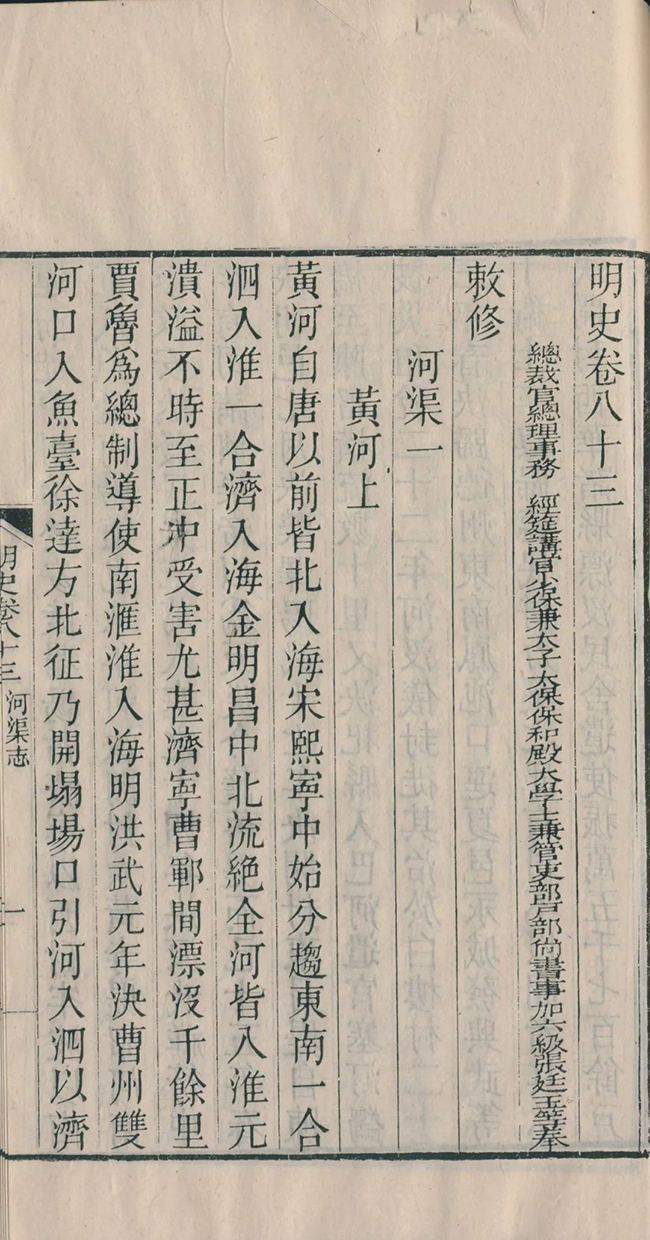 明史卷八十三
總裁官總理事務 經筵講官少保兼太子太保保和殿大學士兼管吏部戶部尚書事加六級張廷玉等奉
敕修
河渠一
黃河上
黃河自唐以前皆北入海宋熙寧中始分趨東南一合
泗入淮一合濟入海金明昌中北流絕全河皆入淮元
潰溢不時至正中受害尤甚濟寧曹鄆間漂沒千餘里
賈魯爲總制導使南滙淮入海明洪武元年決曹州雙
河口入魚臺徐達方北征乃開塌場口引河入泗以濟
明史卷八十三 河渠志 一